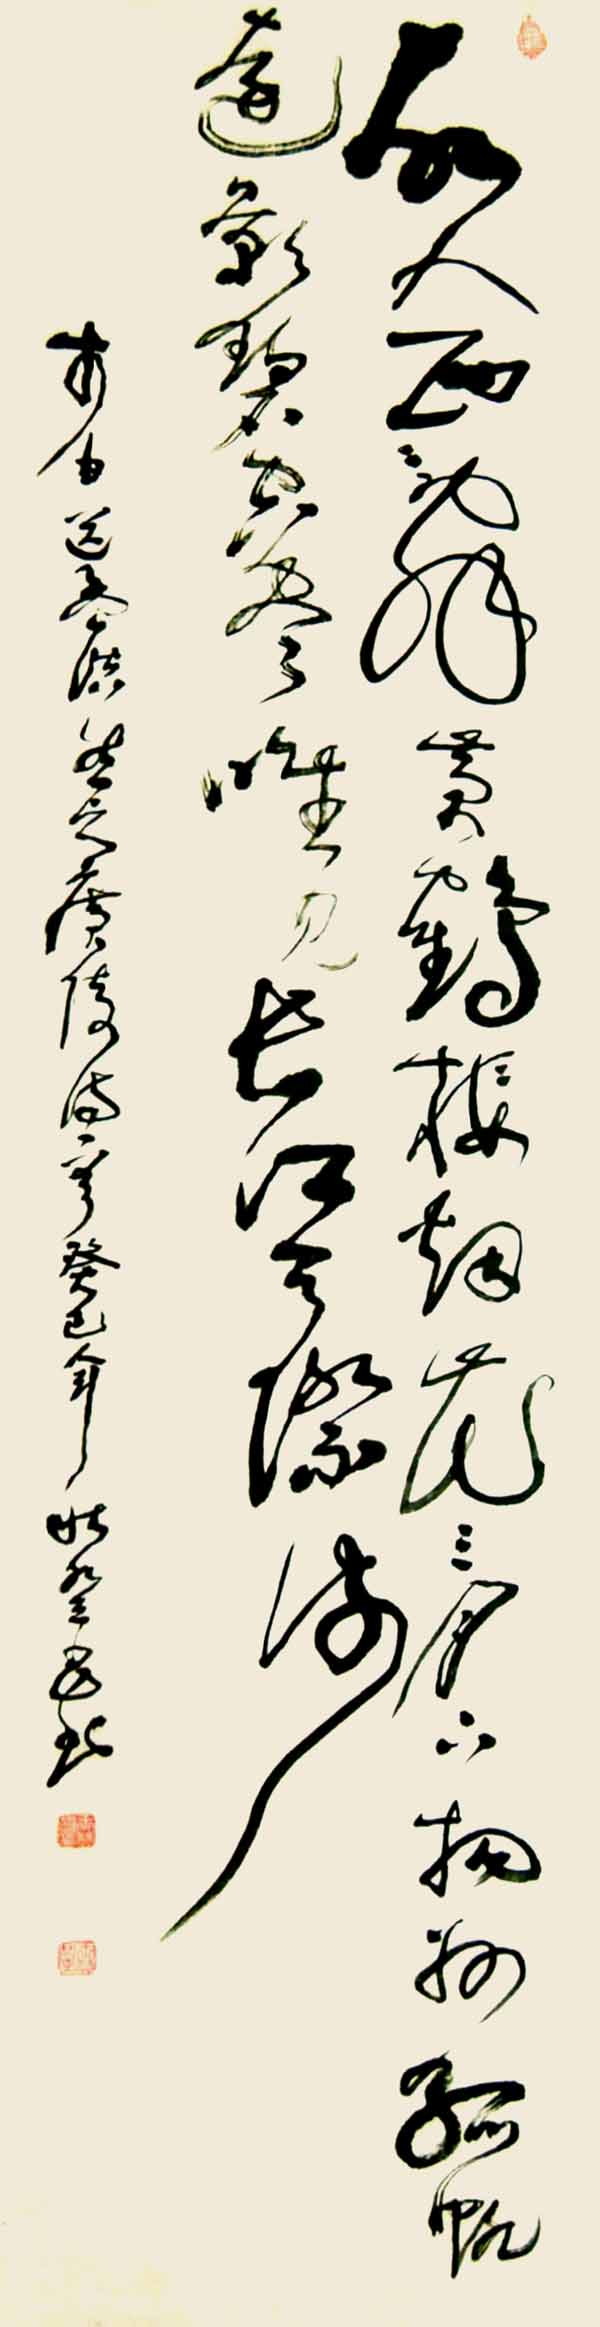 故人西辞黄鹤楼烟花三月下扬州孤帆
远影碧空尽唯见长江天际流
李白送孟浩然之广陵诗一章癸巳年